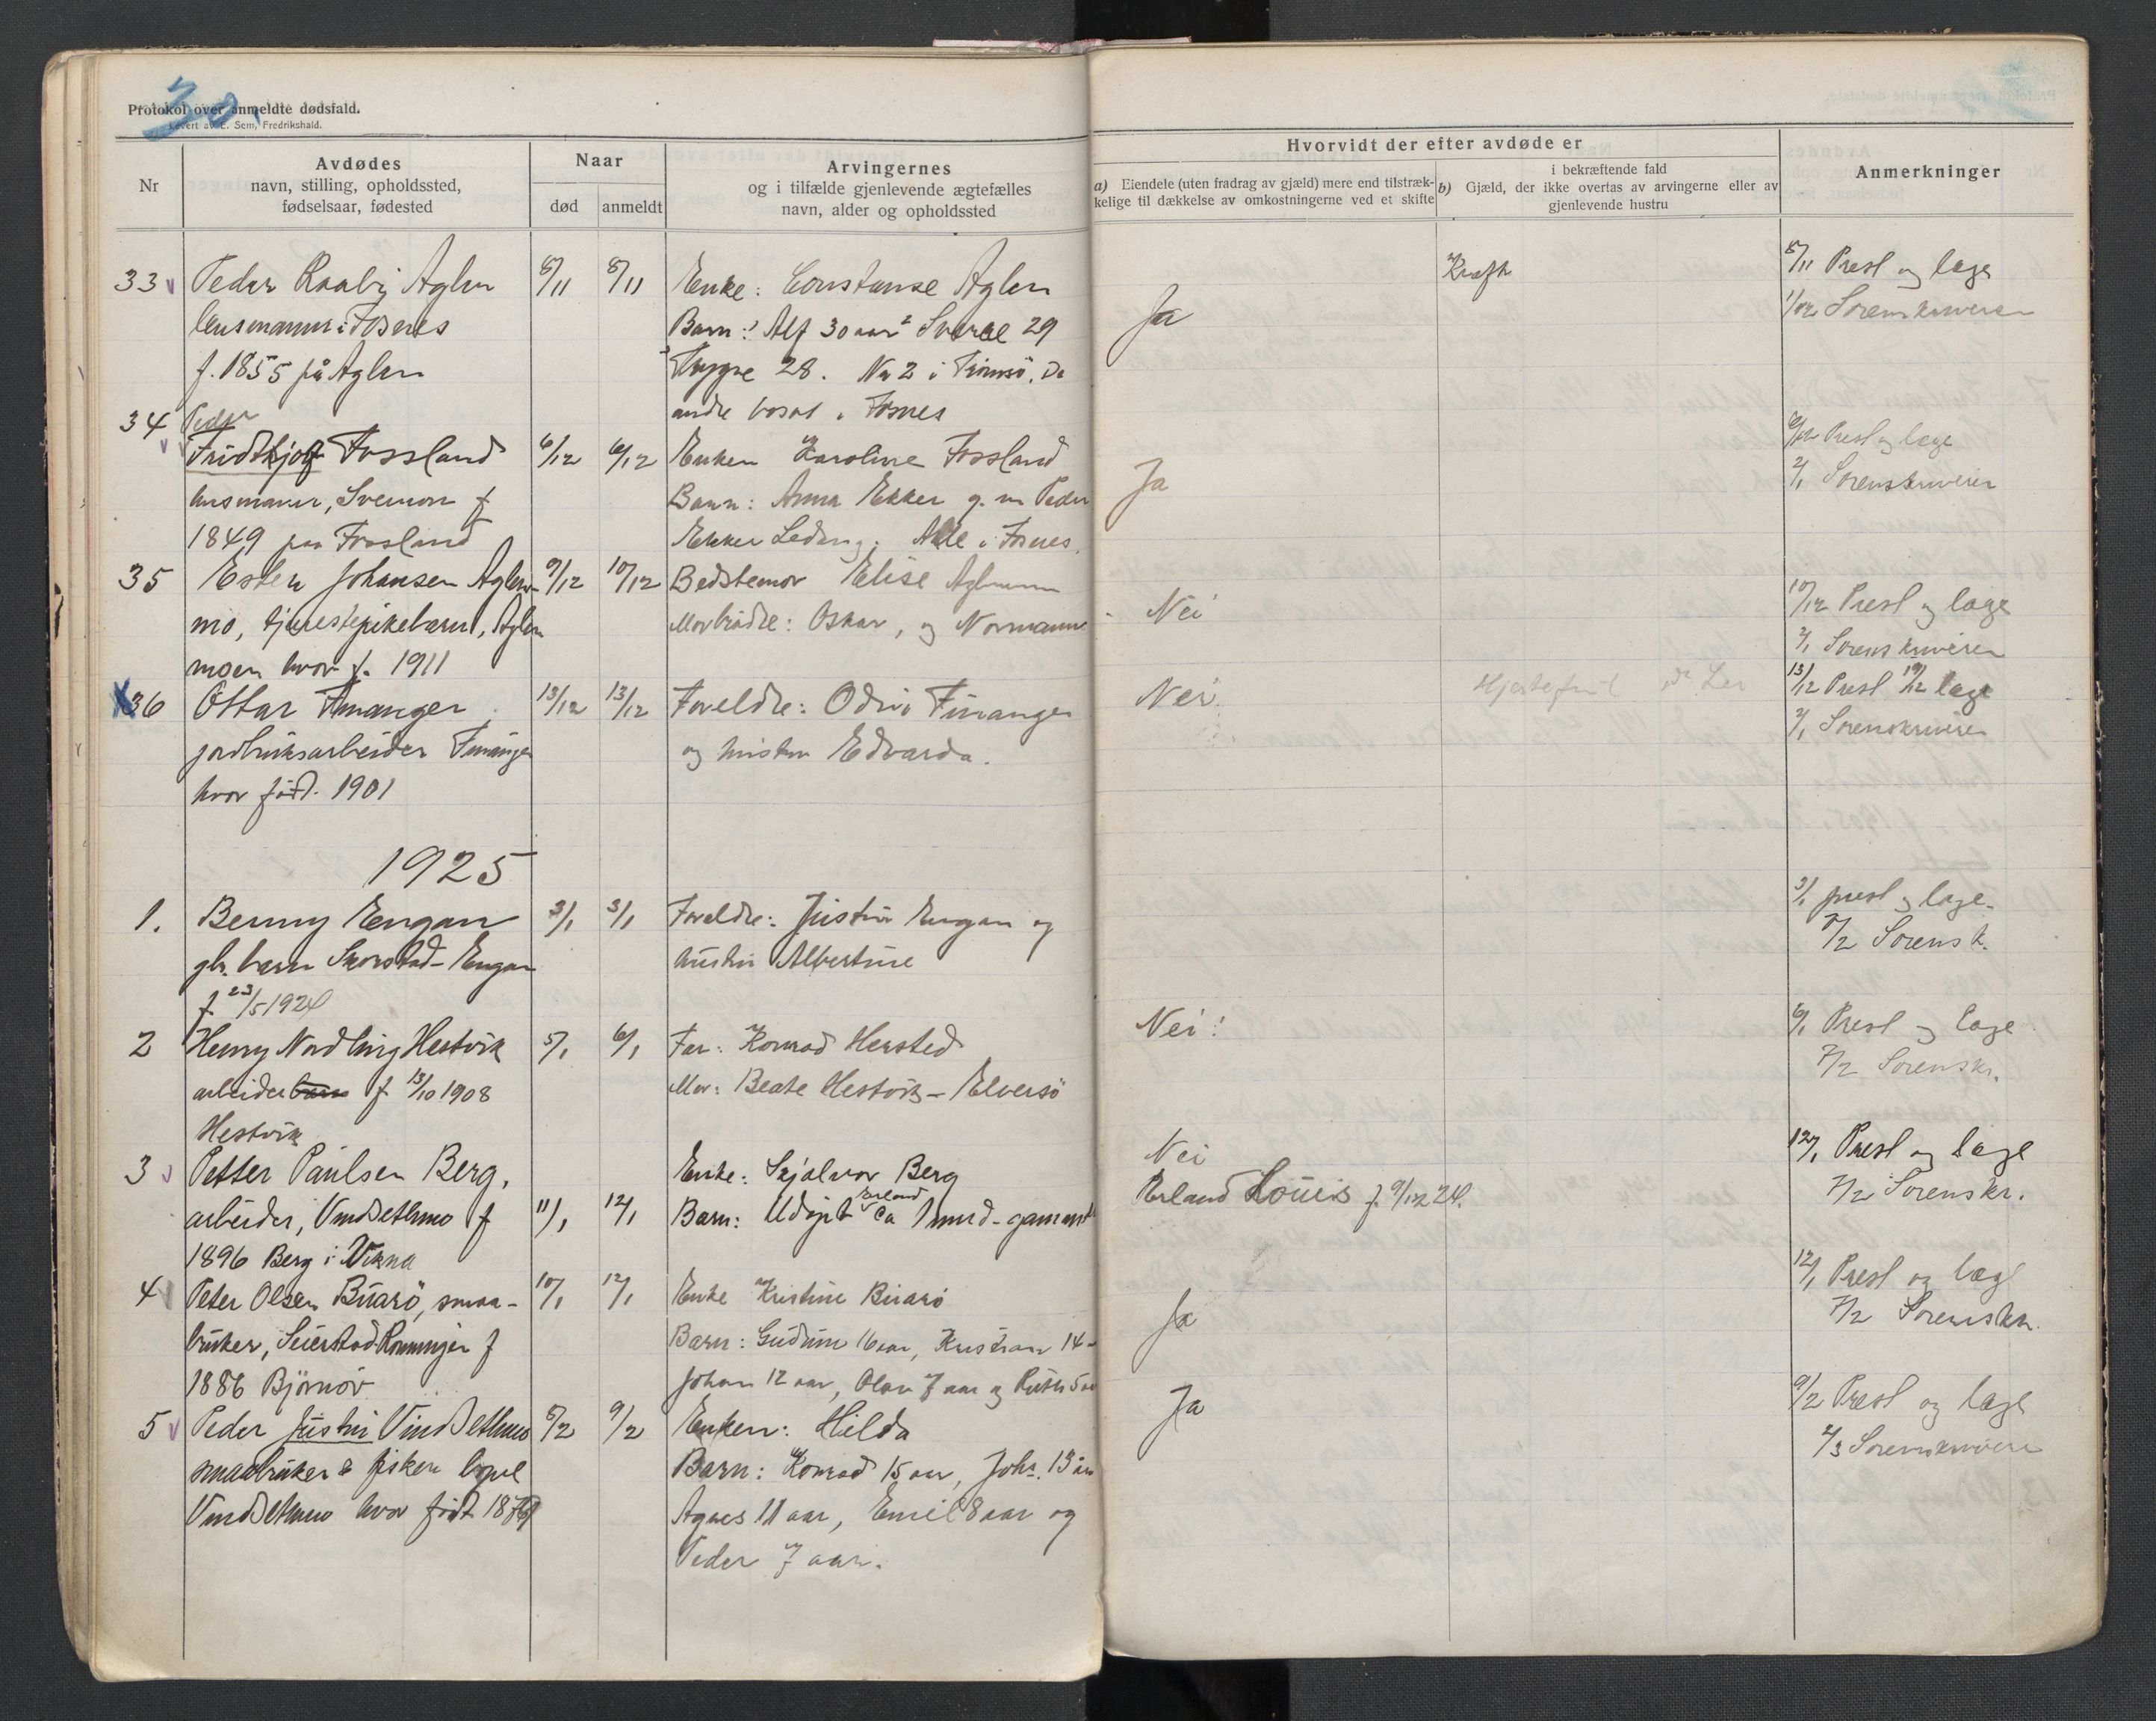 Protokol over anmeldte dødsfald.
Levert av E. Sem, Fredrikshald.
Nr
Avdødes
navn, stilling, opholdssted,
fødselsaar, fødested
Naar
død
anmeldt
Arvingernes
og i tilfælde gjenlevende ægtefælles
navn, alder og opholdssted
Hvorvidt der efter avdøde er
a) Eiendele (uten fradrag av gjæld) mere end tilstræk-
kelige til dækkelse av omkostningerne ved et skifte
i bekræftende fald
b) Gjæld, der ikke overtas av arvingerne eller av
gjenlevende hustru
Anmerkninger
33 Peder Raabj Aglen 8/11 8/11 Enke: Constanse Aglen Kræft 8/11 Prest og læge
lensmann i Fosnes Barn: 1 Alf 30 aar 2 Sverre 29 Ja 1/12 Sorenskriveren
f. 1855 på Aglen 3 Trygve 28. No 2 i Tromsö. De
andre bosat i Fosnes
34 Peder
Fridthjof Fossland 6/12 6/12 Enken Karoline Fossland Ja Prest og læge
f Barn: Anna Ekker g. m Peder 2/1 Sorenskriveren
1849 paa Fossland Ekker Alle i Fosnes.
35 Esten Johansen Aglen- 9/12 10/12 Bedstemor Elise Nei 10/12 Prest og læge
mo, tjenestepikebarn, Aglen Morbrødre: Oskar, og Normann 2/1 Sorenskriveren
moen hvor f. 1911
36 Ottar Finanger 13/12 13/12 Foreldre: Odin Finanger Nei Hjertefeil 13/12 Prest 19/12 læge
jordbruksarbeider Finanger og hustru Edvarda. 2/1 Sorenskriveren
hvor född. 1901
1925
1. Benny Engan 3/1 3/1 Foreldre: Justin Engan og 3/1 prest og læge.
barn Skorstad-Engan hustru Albertine 7/2 Sorensk.
f 23/5 1924
2 Henry Nordling Hestvik 5/1 6/1 Far: Konrad Hersted Nei! 6/1 Prest og læge
arbeider barn f 13/10 1908 Mor: Beate Hestvik - Elversö 7/2 Sorenskr.
Hestvik
3 Petter Paulsen Berg, Enke: Skjalvor Berg Nei 12/1 Prest og læge
arbeider, Vindsethmo f 11/1 12/1 Barn: Udöpt Erland ca 1 mnd. gammel Erland Louis f. 9/12 24. 7/2 Sorenskr.
1896 Berg i Vikna
4 Peter Olsen Buarö, smaa- 10/1 12/1 Enke Kristine Buarö Ja 12/1 Prest og læge
bruker, Seierstad Rönningen f Barn: Gudrun 16 aar, Kristian 14- 7/2 Sorenskr.
1886 Björnör Johan 12 aar, Olav 7 aar og Ruth 5 aar
5 Peder Justin Vindsethmo 8/2 9/2 Enken: Hilda Ja 9/2 Prest og læge
smaabruker & fisker Barn: Konrad 15 aar, Johs. 13 aar 2/3 Sorenskriveren
Vindsethmo hvor født Agnes 11 aar, Emil 8 aar og
Peder 7 aar.